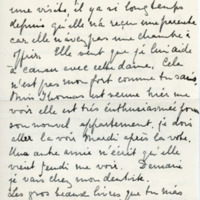 une visite, il ya si longtemps
depuis qu'elle n'a reçu une parente
car elle n'avait pas une chambre à
offrir. Elle veut que je lui aide
à causer avec cette dame. Cela
n'est pas mon fort comme tu sais
Miss Thomas est venue hier me
voir elle est très enthusiasmée pour
son nouvel appartement, je dois
aller la voir Mardi après la vote.
Une autre amie m'écrit qu'elle
vient jeudi me voir. Demain
je vais chez mon dentiste.
Les gros beaux livres que tu m'as